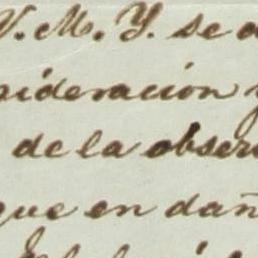 V. M. Y. se
sideracion y
de la obser
que en dañ